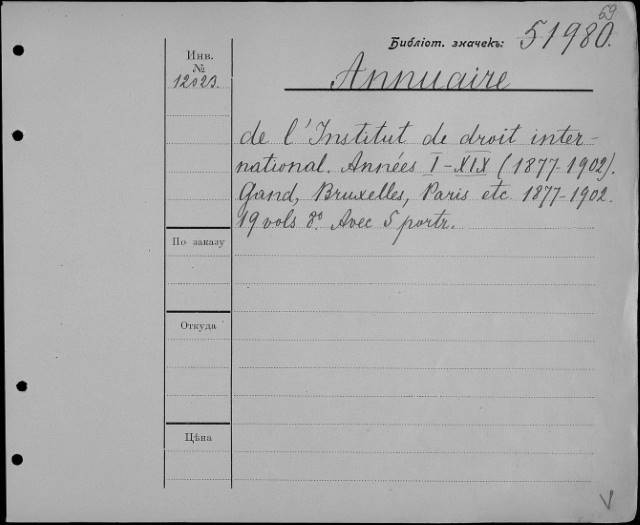 69
Библіот. значекъ: 51980.
Инв.
№
12023.
Annuaire
de l'Institut de droit inter-
national. Années I-XIX (1877-1902).
Gand, Bruxelles, Paris etc 1877-1902.
19 vols 8° Avec 5 portr.
По заказу
Откуда
Цѣна
V